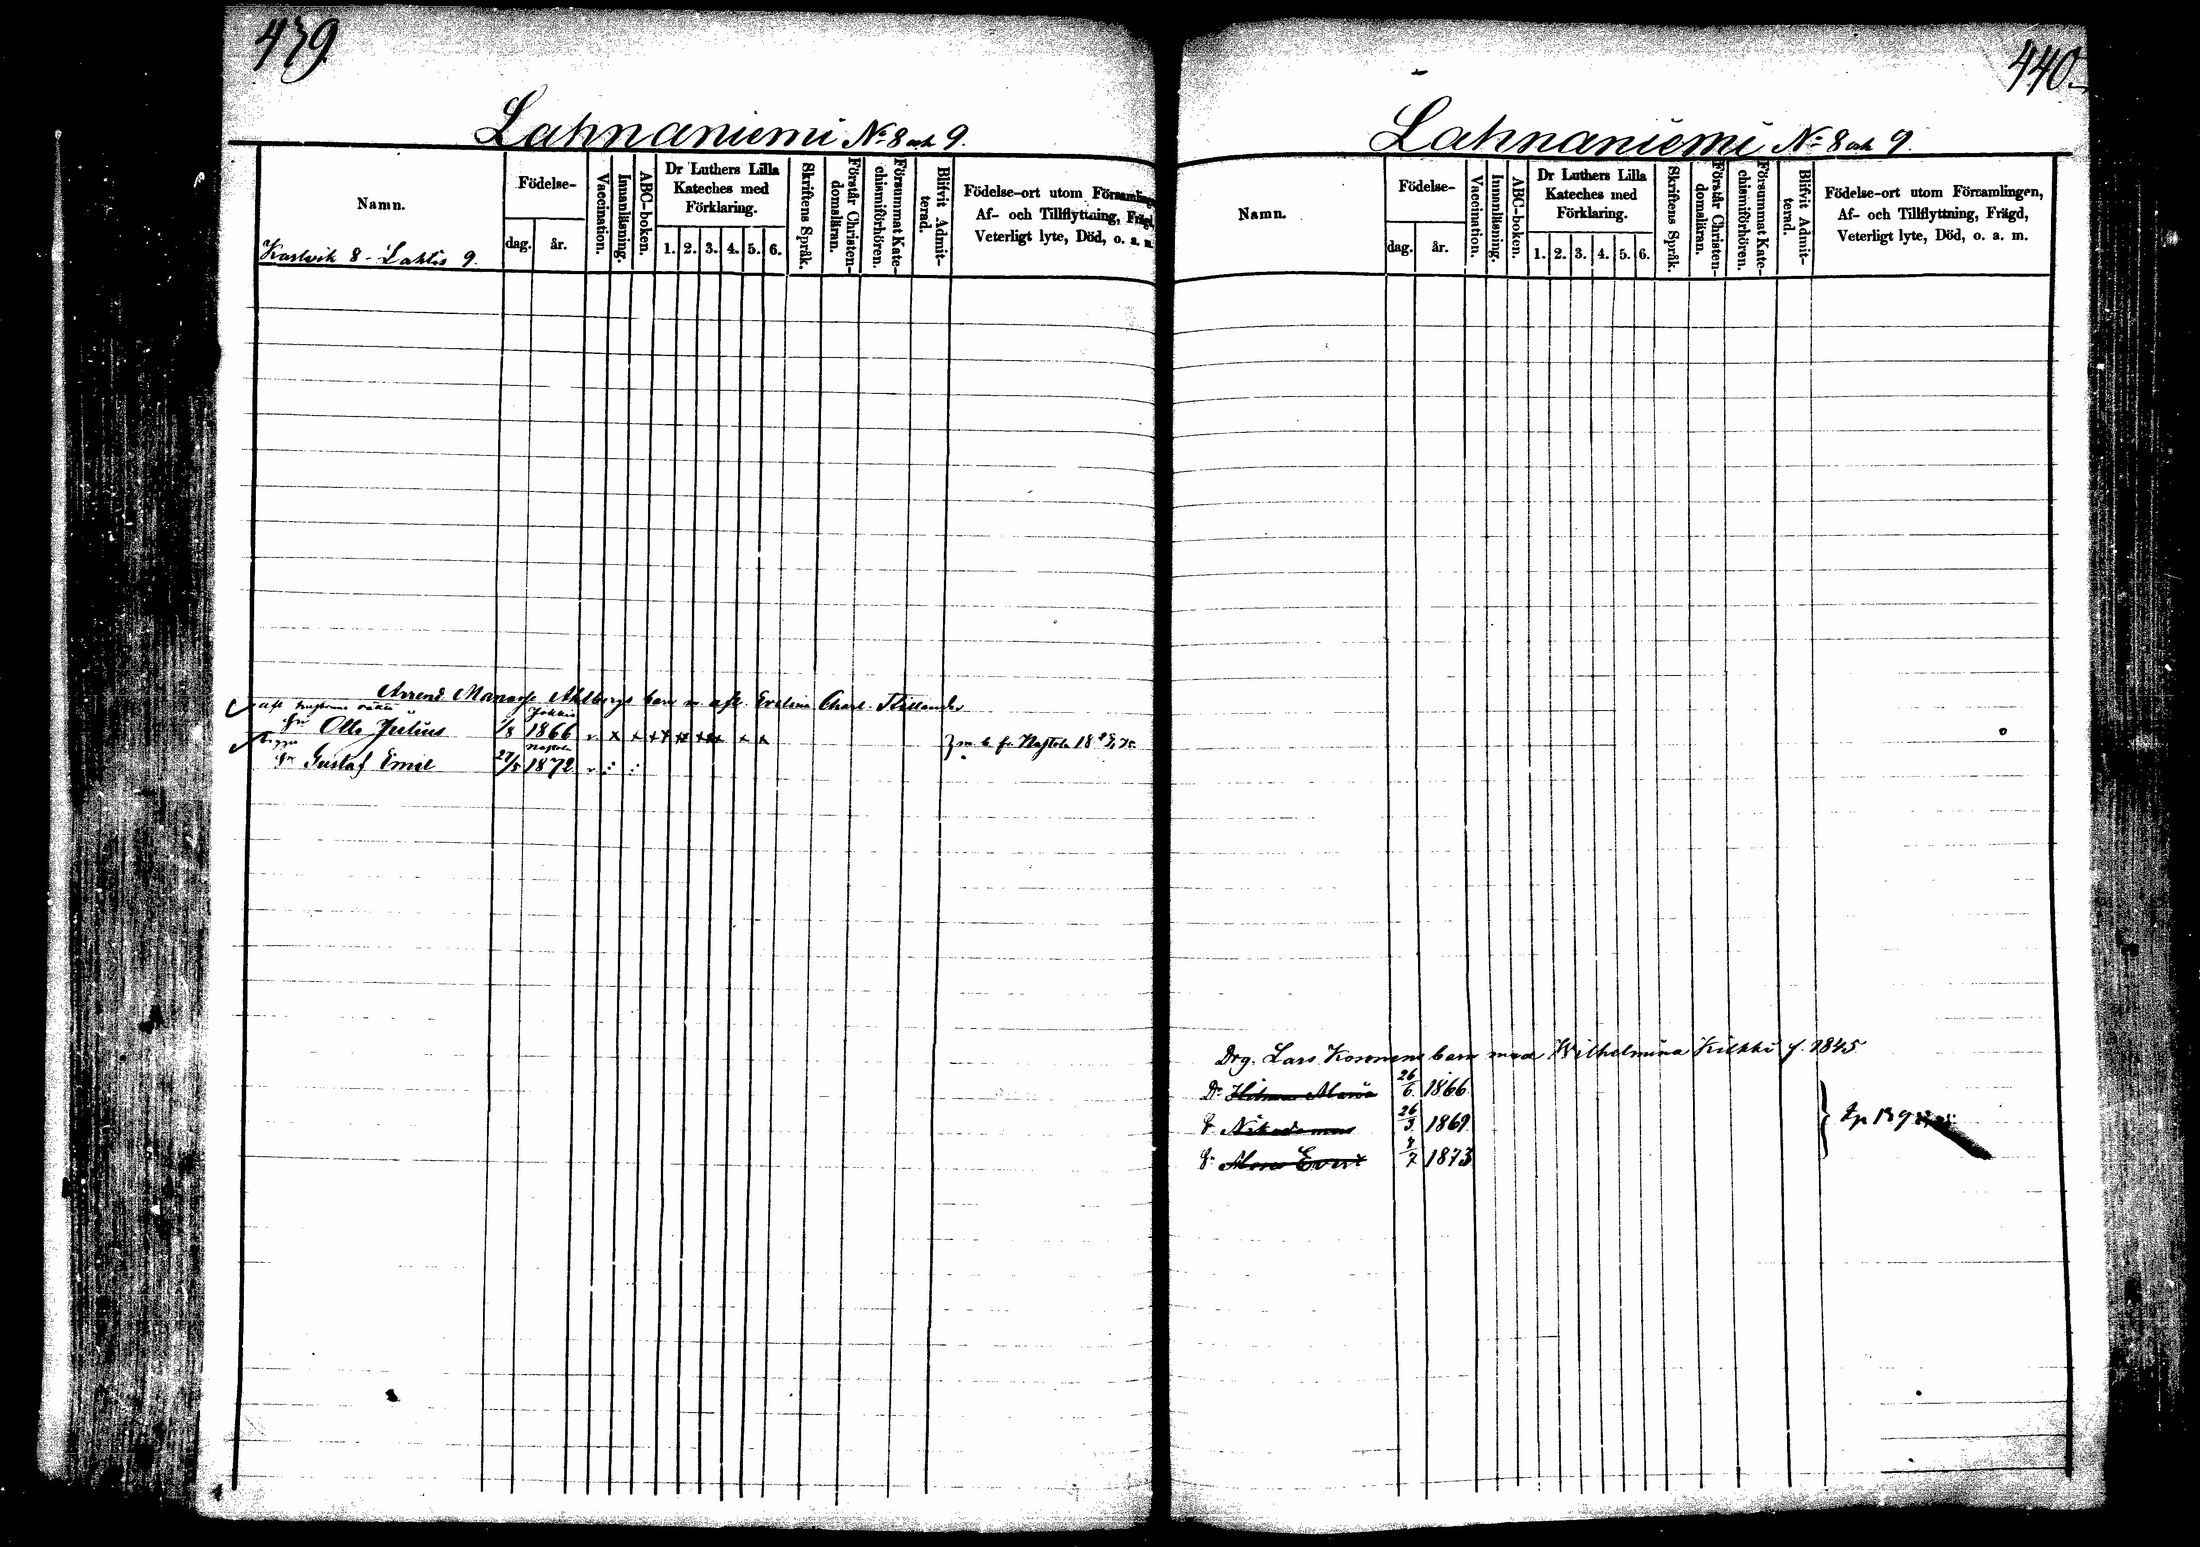 439
Lahnaniemi No 8 och 9.
Namn.
Födelse-
dag.
år.
Vaccination.
Innanläsning.
ABC-boken.
Dr Luthers Lilla
Kateches med
Förklaring.
1. 2. 3. 4. 5. 6.
Skriftens Språk.
Förstår Christen-
domsläran.
Försummat Kate-
chismiförhören.
Blifvit Admit-
terad.
Födelse-ort utom Församling
Af- och Tillflyttning, Frägd,
Veterligt lyte, Död, o. a. m.
Karlvik 8 - Lahtis 9.
Arrend. Manasse Ahlbergs barn m. afl. Evelina Charl. Killander
Jokkis
Gr Otto Julius 1/8 1866
Nastola
Gr Gustaf Emil 27/5 1872
m. b. fr. Nastola 18
440
Lahnaniemi No 8 och 9.
Namn.
Födelse-
dag.
år.
Vaccination.
Innanläsning.
ABC-boken.
Dr Luthers Lilla
Kateches med
Förklaring.
1. 2. 3. 4. 5. 6.
Skriftens Språk.
Förstår Christen-
domsläran.
Försummat Kate-
chismiförhören.
Blifvit Admit-
terad.
Födelse-ort utom Församlingen,
Af- och Tillflyttning, Frägd,
Veterligt lyte, Död, o. a. m.
Drg. Lars Kosonens barn med Wilhelmina Kilkki f. 1845
Dr Maria 26/6 1866
Nikodemus 26/3 1869
8/7 1873